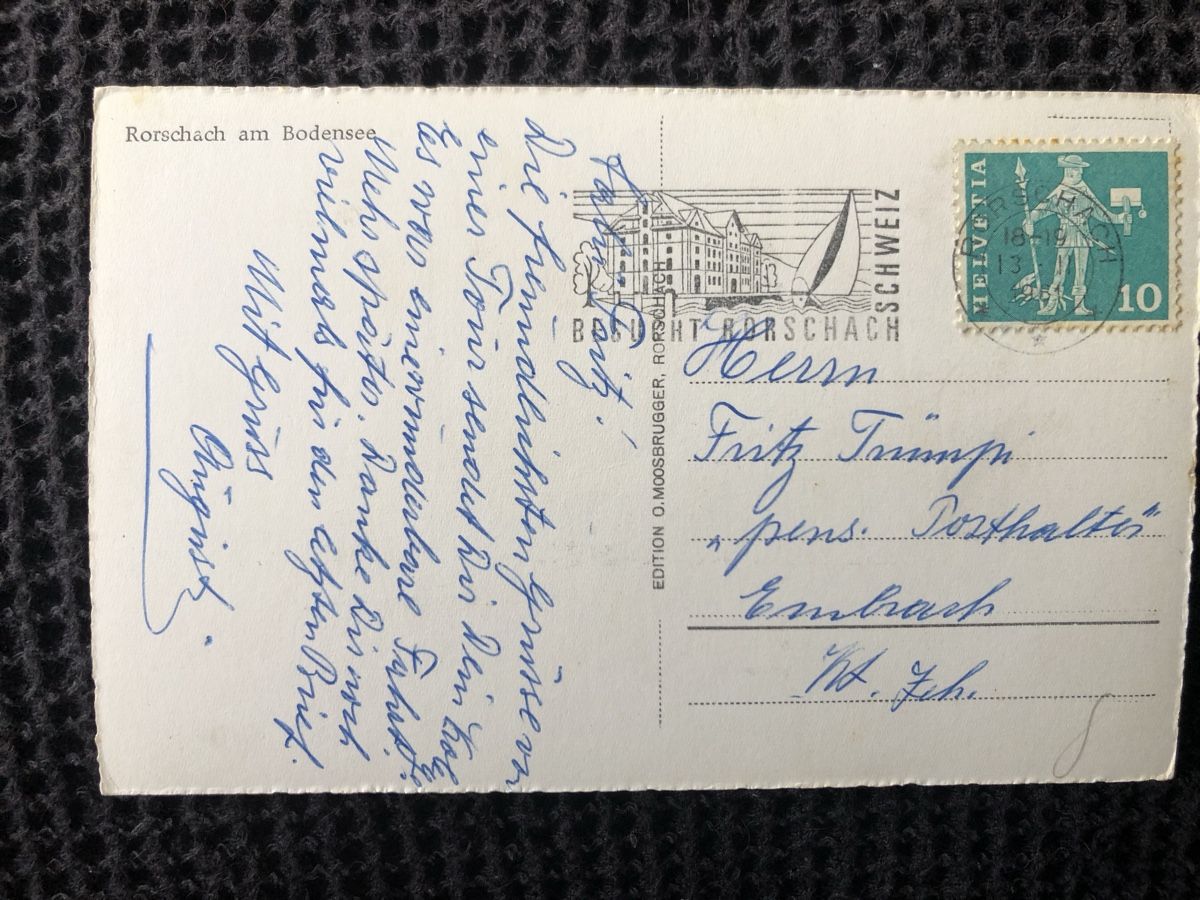 Rorschach am Bodensee
Fritz!
Die freundlichsten Grüsse von
einer Tour sendet Dir Dein
Es war eine wunderbare Fahrt.
Mehr später. Danke Dir noch
vielmals für den Brief.
Mit Gruss
August.
EDITION O. MOOSBRUGGER, RORSCHACH
BESUCHT RORSCHACH
SCHWEIZ
HELVETIA
10
RORSCHACH
18-19
13
Herrn
Fritz Trümpi
„pens. Posthalter"
Embrach
Kt. Zch.